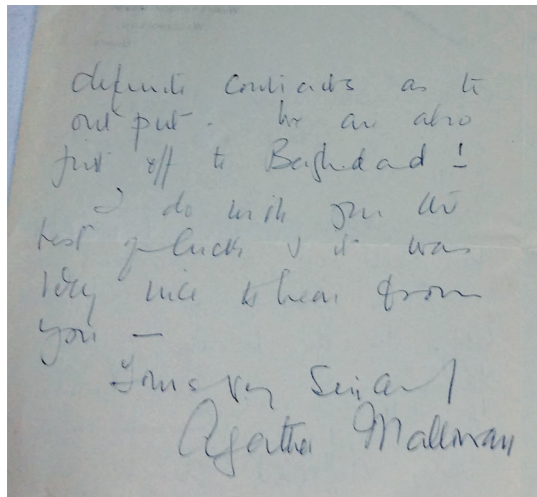 definite contracts as to
output. We are also
just off to Baghdad!
I do wish you the
best of luck & it was
very nice to hear from
you —
Yours very Sincerely
Agatha Mallowan